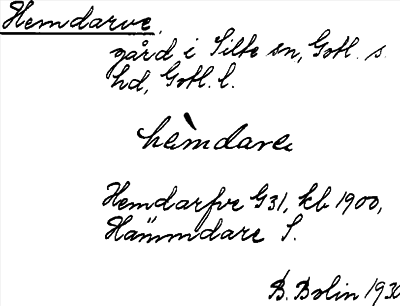 Hemdarve,
gård i Silte sn, Gotl. s.
hd, Gotl. l.
hèmdare
Hemdarfve G31, kb 1900,
Hammdare S.
B. Bolin 1930